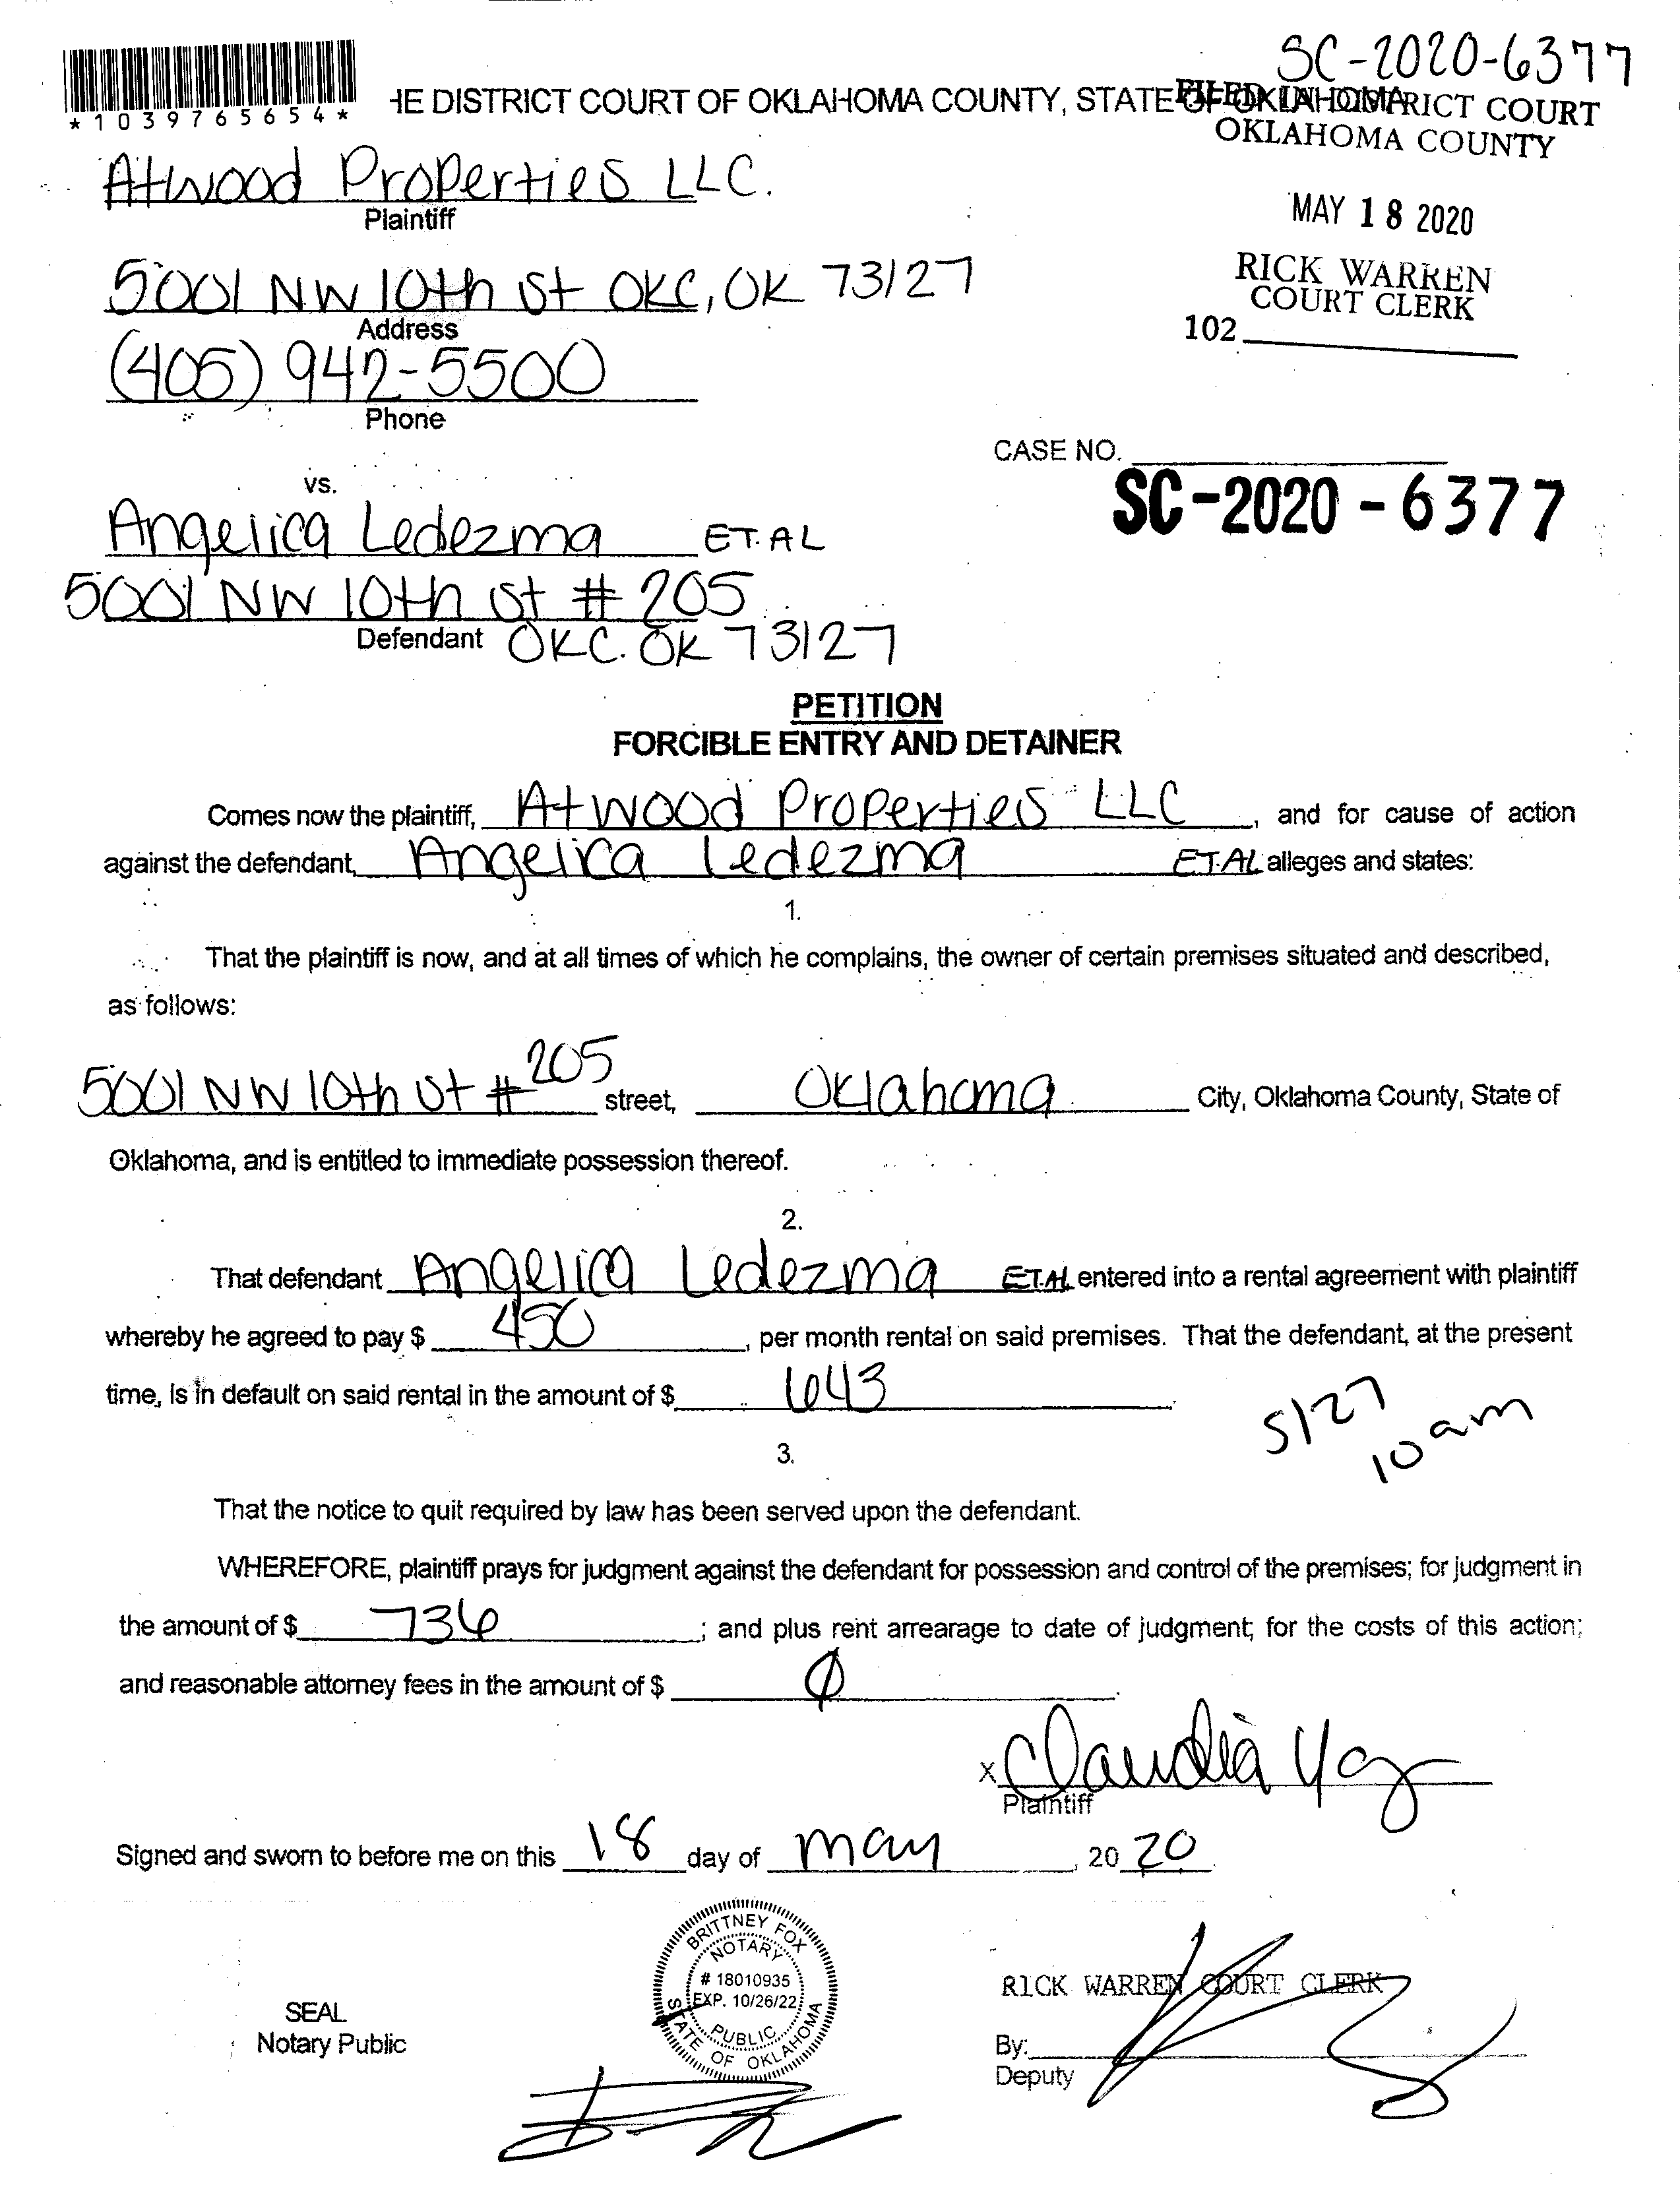 SC-2020-6377
*1039765654*
HE DISTRICT COURT OF OKLAHOMA COUNTY, STATE OF OKLAHOMA
FILED IN DISTRICT COURT
OKLAHOMA COUNTY
MAY 18 2020
RICK WARREN
COURT CLERK
102
Atwood Properties LLC.
Plaintiff
5001 NW 10th St OKC, OK 73127
Address
(405) 942-5500
Phone
CASE NO.
SC-2020-6377
vs.
Angelica Ledezma ET.AL
5001 NW 10th St # 205
Defendant OKC. OK 73127
PETITION
FORCIBLE ENTRY AND DETAINER
Comes now the plaintiff, Atwood Properties LLC, and for cause of action
against the defendant, Angelica Ledezma ET.AL alleges and states:
1.
That the plaintiff is now, and at all times of which he complains, the owner of certain premises situated and described,
as follows:
5001 NW 10th St # 205 street, Oklahoma City, Oklahoma County, State of
Oklahoma, and is entitled to immediate possession thereof.
2.
That defendant Angelica Ledezma ET.AL entered into a rental agreement with plaintiff
whereby he agreed to pay $ 450, per month rental on said premises. That the defendant, at the present
time, is in default on said rental in the amount of $ 643.
5/27
10am
3.
That the notice to quit required by law has been served upon the defendant.
WHEREFORE, plaintiff prays for judgment against the defendant for possession and control of the premises; for judgment in
the amount of $ 736; and plus rent arrearage to date of judgment; for the costs of this action;
and reasonable attorney fees in the amount of $ Ø.
X Claudia
Plaintiff
Signed and sworn to before me on this 18 day of may, 2020.
BRITTNEY FOX
NOTARY
# 18010935
EXP. 10/26/22
PUBLIC
STATE OF OKLAHOMA
SEAL
Notary Public
RICK WARREN COURT CLERK
By:
Deputy